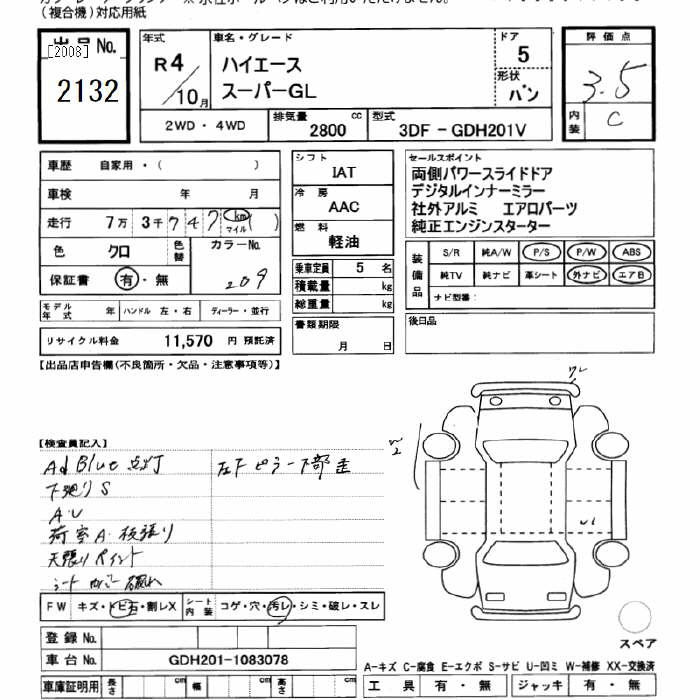 (複合機)対応用紙
出品No.
[2008]
2132
年式
R4/10月
車名・グレード
ハイエース
スーパーGL
ドア
5
形状
バン
評価点
3.5
内装
C
2WD・4WD
排気量
2800 cc
型式
3DF-GDH201V
車歴 自家用・( )
車検 年 月
走行 7万 3千 7 4 7 km マイル ( )
色 クロ 色替 カラーNo.
209
保証書 有・無
シフト
IAT
冷房
AAC
燃料
軽油
乗車定員 5 名
積載量 kg
総重量 kg
書類期限
月 日
セールスポイント
両側パワースライドドア
デジタルインナーミラー
社外アルミ エアロパーツ
純正エンジンスターター
装備品
S/R 純A/W P/S P/W ABS
純TV 純ナビ 革シート 外ナビ エアB
ナビ型番:
後日品
モデル年式 年 ハンドル 左・右 ディーラー・並行
リサイクル料金 11,570 円 預託済
【出品店申告欄(不良箇所・欠品・注意事項等)】
【検査員記入】
Ad Blue 点灯
左下ピラー下部歪
下廻りS
A.U
荷室A
天張りペイント
ワレ
W2
U1
FW キズ・トビ石・割レX シート内装 コゲ・穴・汚レ・シミ・破レ・スレ
登録No.
車台No. GDH201-1083078
車庫証明用 長さ cm 幅 cm 高さ cm
スペア
A-キズ C-腐食 E-エクボ S-サビ U-凹ミ W-補修 XX-交換済
工具 有・無 ジャッキ 有・無